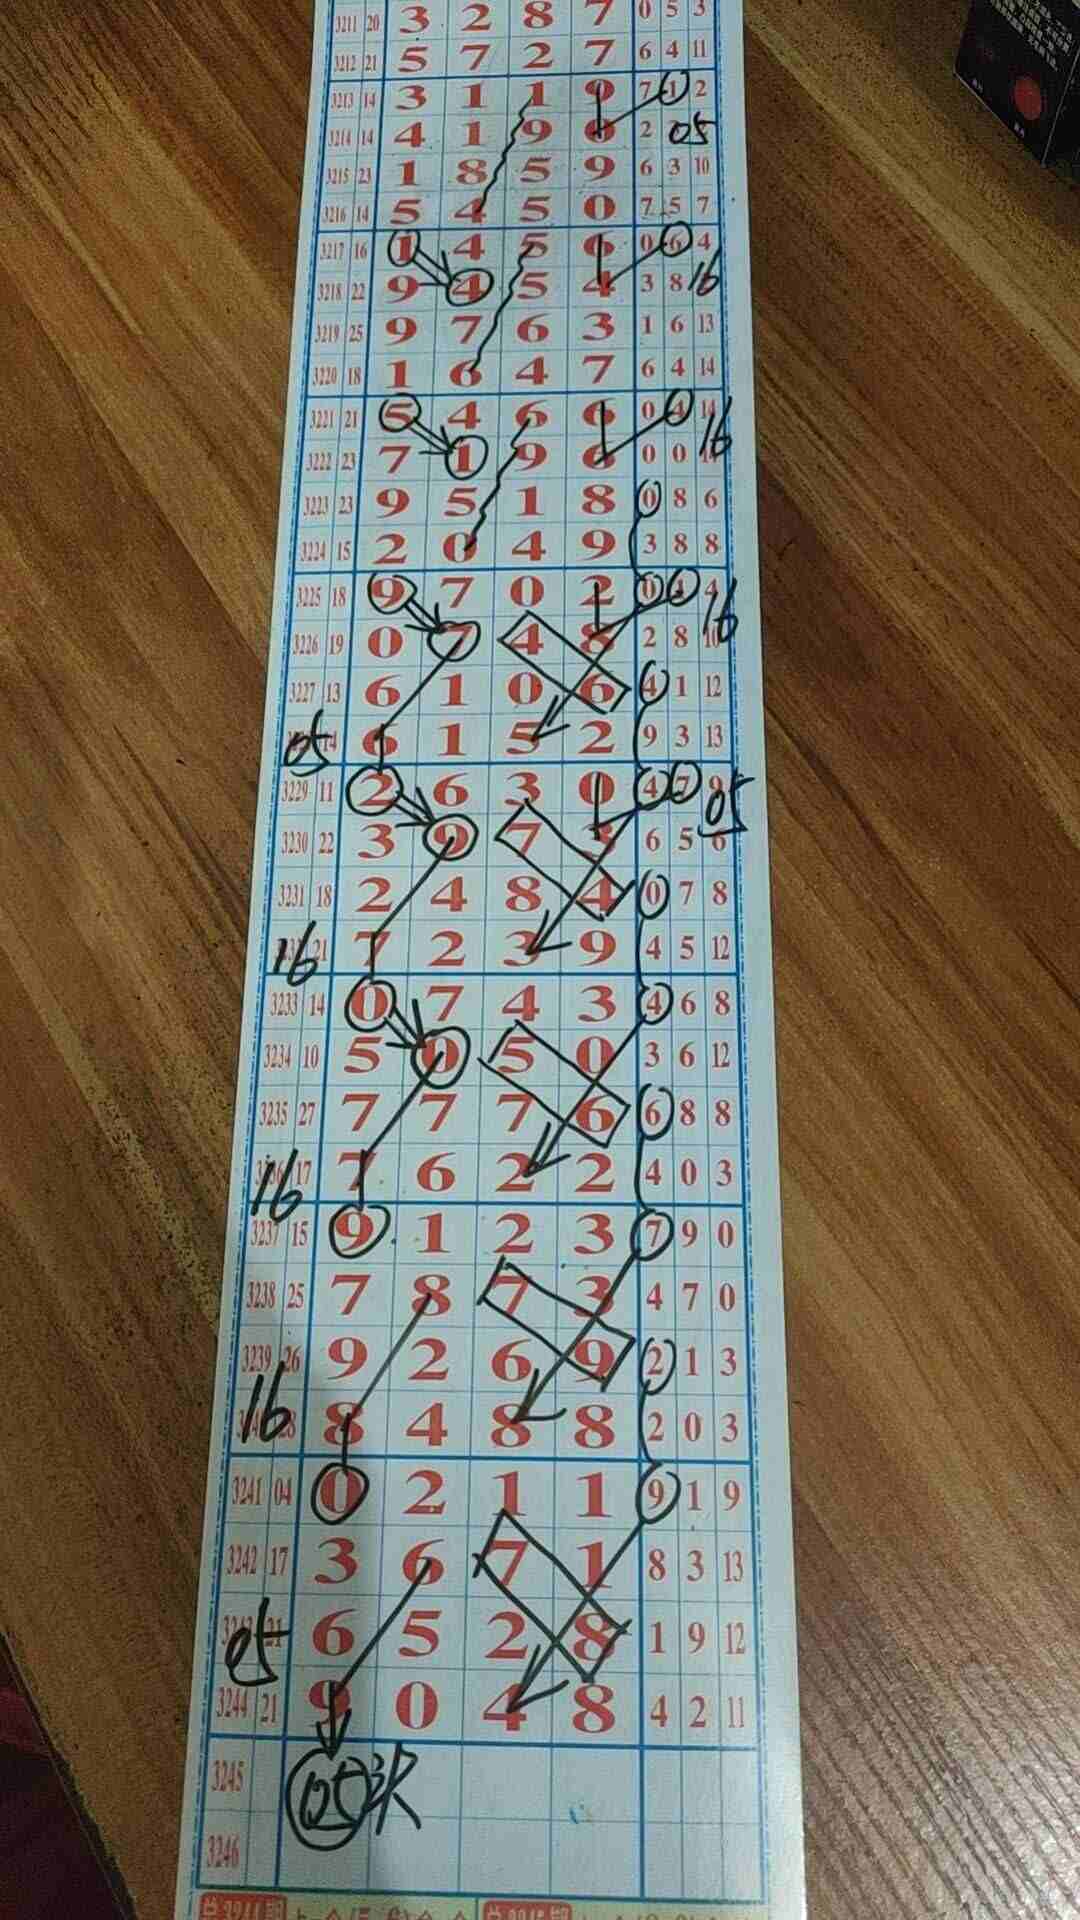 3211 20 3 2 8 7 0 5 3
3212 21 5 7 2 7 6 4 11
3213 14 3 1 1 9 7 1 2
3214 14 4 1 9 0 2 05
3215 23 1 8 5 9 6 3 10
3216 14 5 4 5 0 7 5 7
3217 16 1 4 5 6 0 6 4
3218 22 9 4 5 4 3 8 16
3219 25 9 7 6 3 1 6 13
3220 18 1 6 4 7 6 4 14
3221 21 5 4 6 6 0 4 14
3222 23 7 1 9 6 0 0 16
3223 23 9 5 1 8 0 8 6
3224 15 2 0 4 9 3 8 8
3225 18 9 7 0 2 0 4 4
3226 19 0 7 4 8 2 8 10 16
3227 13 6 1 0 6 4 1 12
05 14 6 1 5 2 9 3 13
3229 11 2 6 3 0 4 7 9 05
3230 22 3 9 7 3 6 5 6
3231 18 2 4 8 4 0 7 8
16 21 7 2 3 9 4 5 12
3233 14 0 7 4 3 4 6 8
3234 10 5 0 5 0 3 6 12
3235 27 7 7 7 6 6 8 8
16 17 7 6 2 2 4 0 3
3237 15 9 1 2 3 7 9 0
3238 25 7 8 7 3 4 7 0
3239 26 9 2 6 9 2 1 3
16 28 8 4 8 8 2 0 3
3241 04 0 2 1 1 9 1 9
3242 17 3 6 7 1 8 3 13
05 21 6 5 2 8 1 9 12
3244 21 9 0 4 8 4 2 11
3245 05
3246